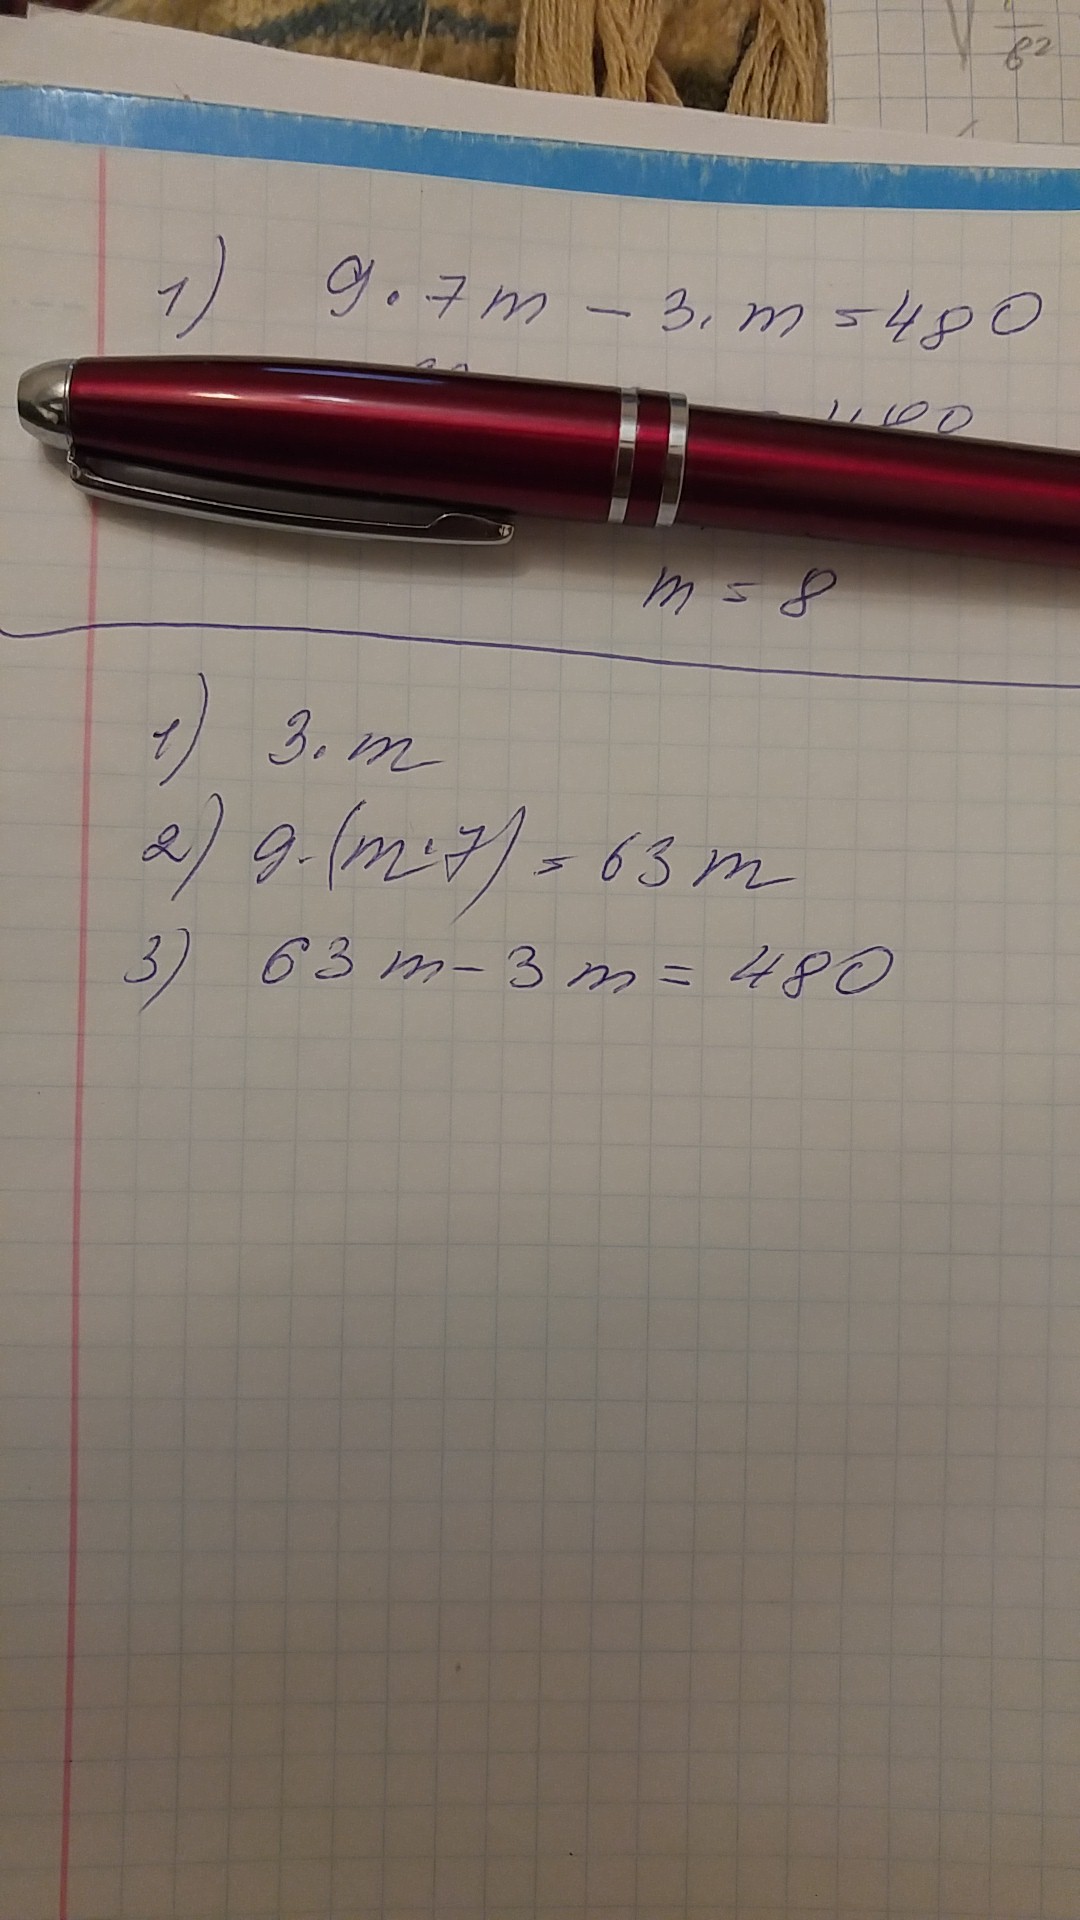 1) 9. 7m - 3. m = 480
m = 8
1) 3. m
2) 9. (m·7) = 63 m
3) 63 m - 3 m = 480